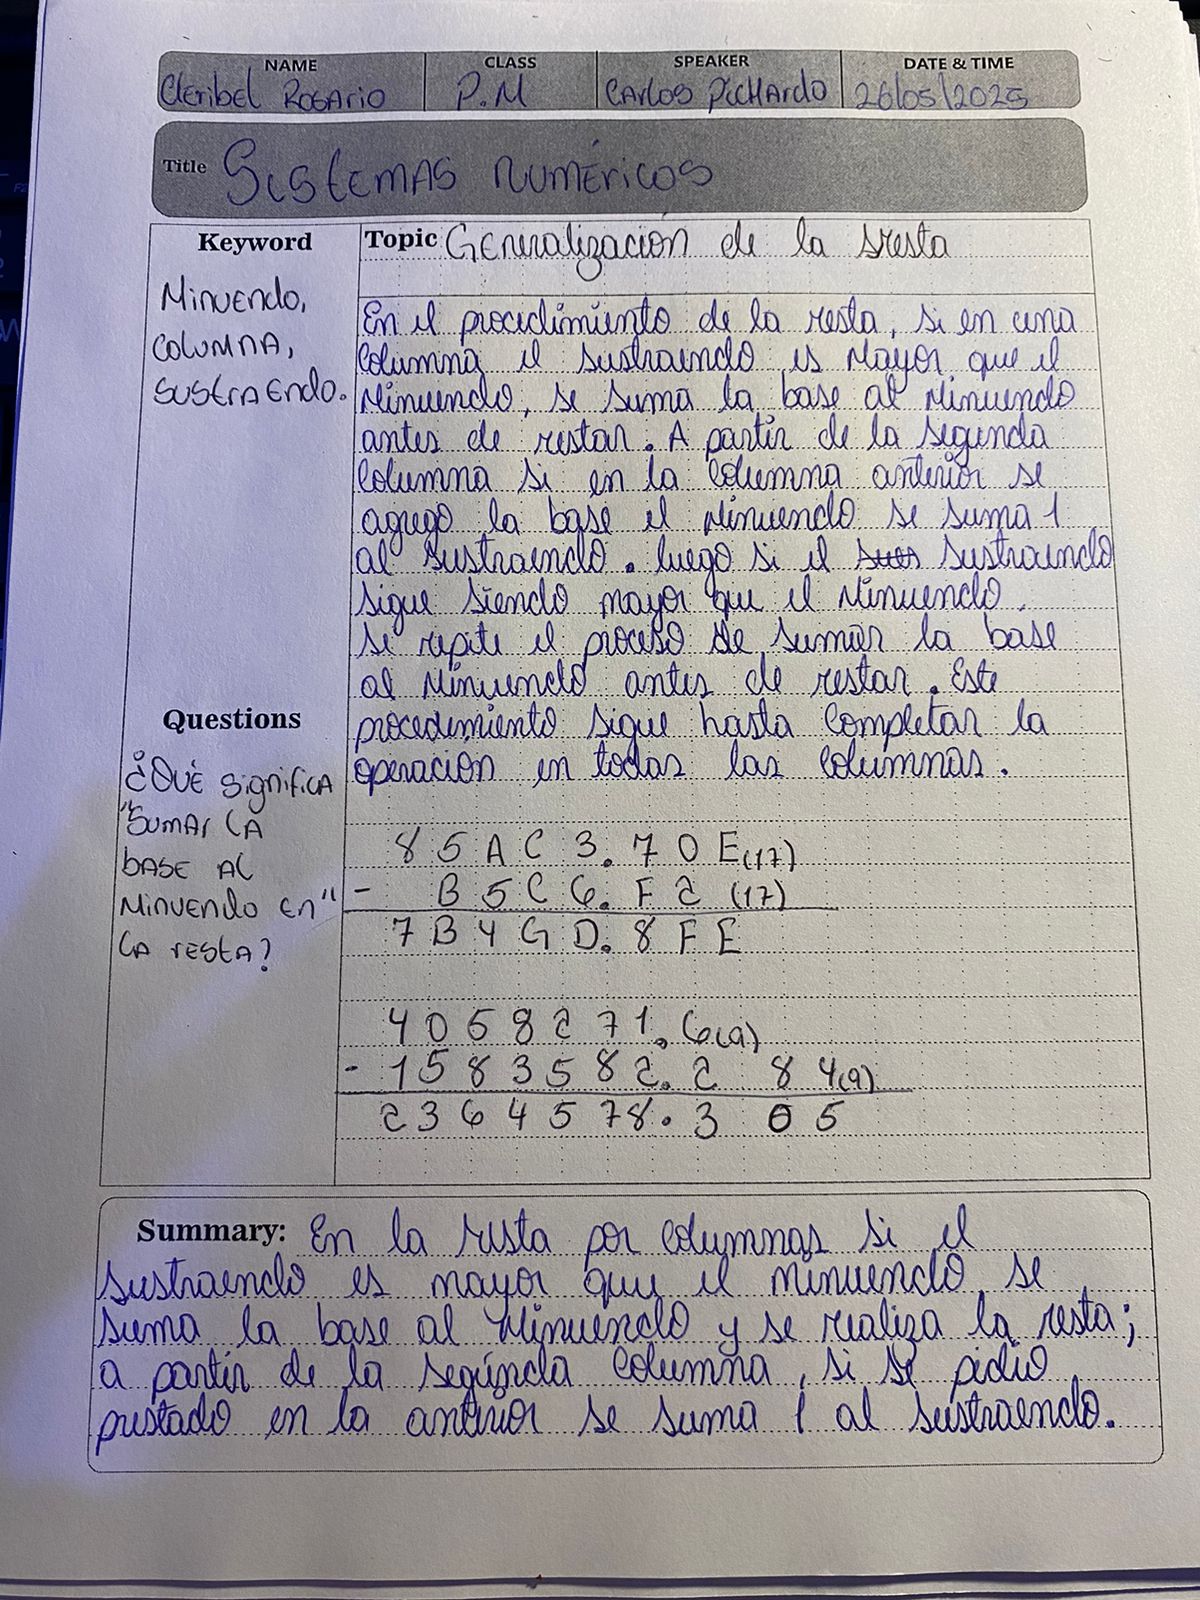 NAME CLASS SPEAKER DATE & TIME
Cleribel Rosario P.M Carlos Pichardo 26/05/2025
Title Sistemas numéricos
Keyword
Minuendo,
columna,
sustraendo.
Topic Generalización de la resta
En el procedimiento de la resta, si en una
columna el sustraendo es mayor que el
minuendo, se suma la base al minuendo
antes de restar. A partir de la segunda
columna si en la columna anterior se
agrego la base el minuendo se suma 1
al sustraendo. luego si el sustraendo
sigue siendo mayor que el minuendo,
se repite el proceso de sumar la base
al minuendo antes de restar. Este
procedimiento sigue hasta completar la
operación en todas las columnas.
Questions
¿Qué significa
"sumar la
base al
minuendo en"
la resta?
8 5 A C 3. 7 0 E(17)
- B 5 C 6. F 2 (17)
7 B 4 G D. 8 F E
4 0 5 8 2 7 1. 6(9)
- 1 5 8 3 5 8 2. 2 8 4(9)
2 3 6 4 5 7 8. 3 0 5
Summary: En la resta por columnas si el
sustraendo es mayor que el minuendo se
suma la base al minuendo y se realiza la resta;
a partir de la segunda columna, si se pidio
prestado en la anterior se suma 1 al sustraendo.